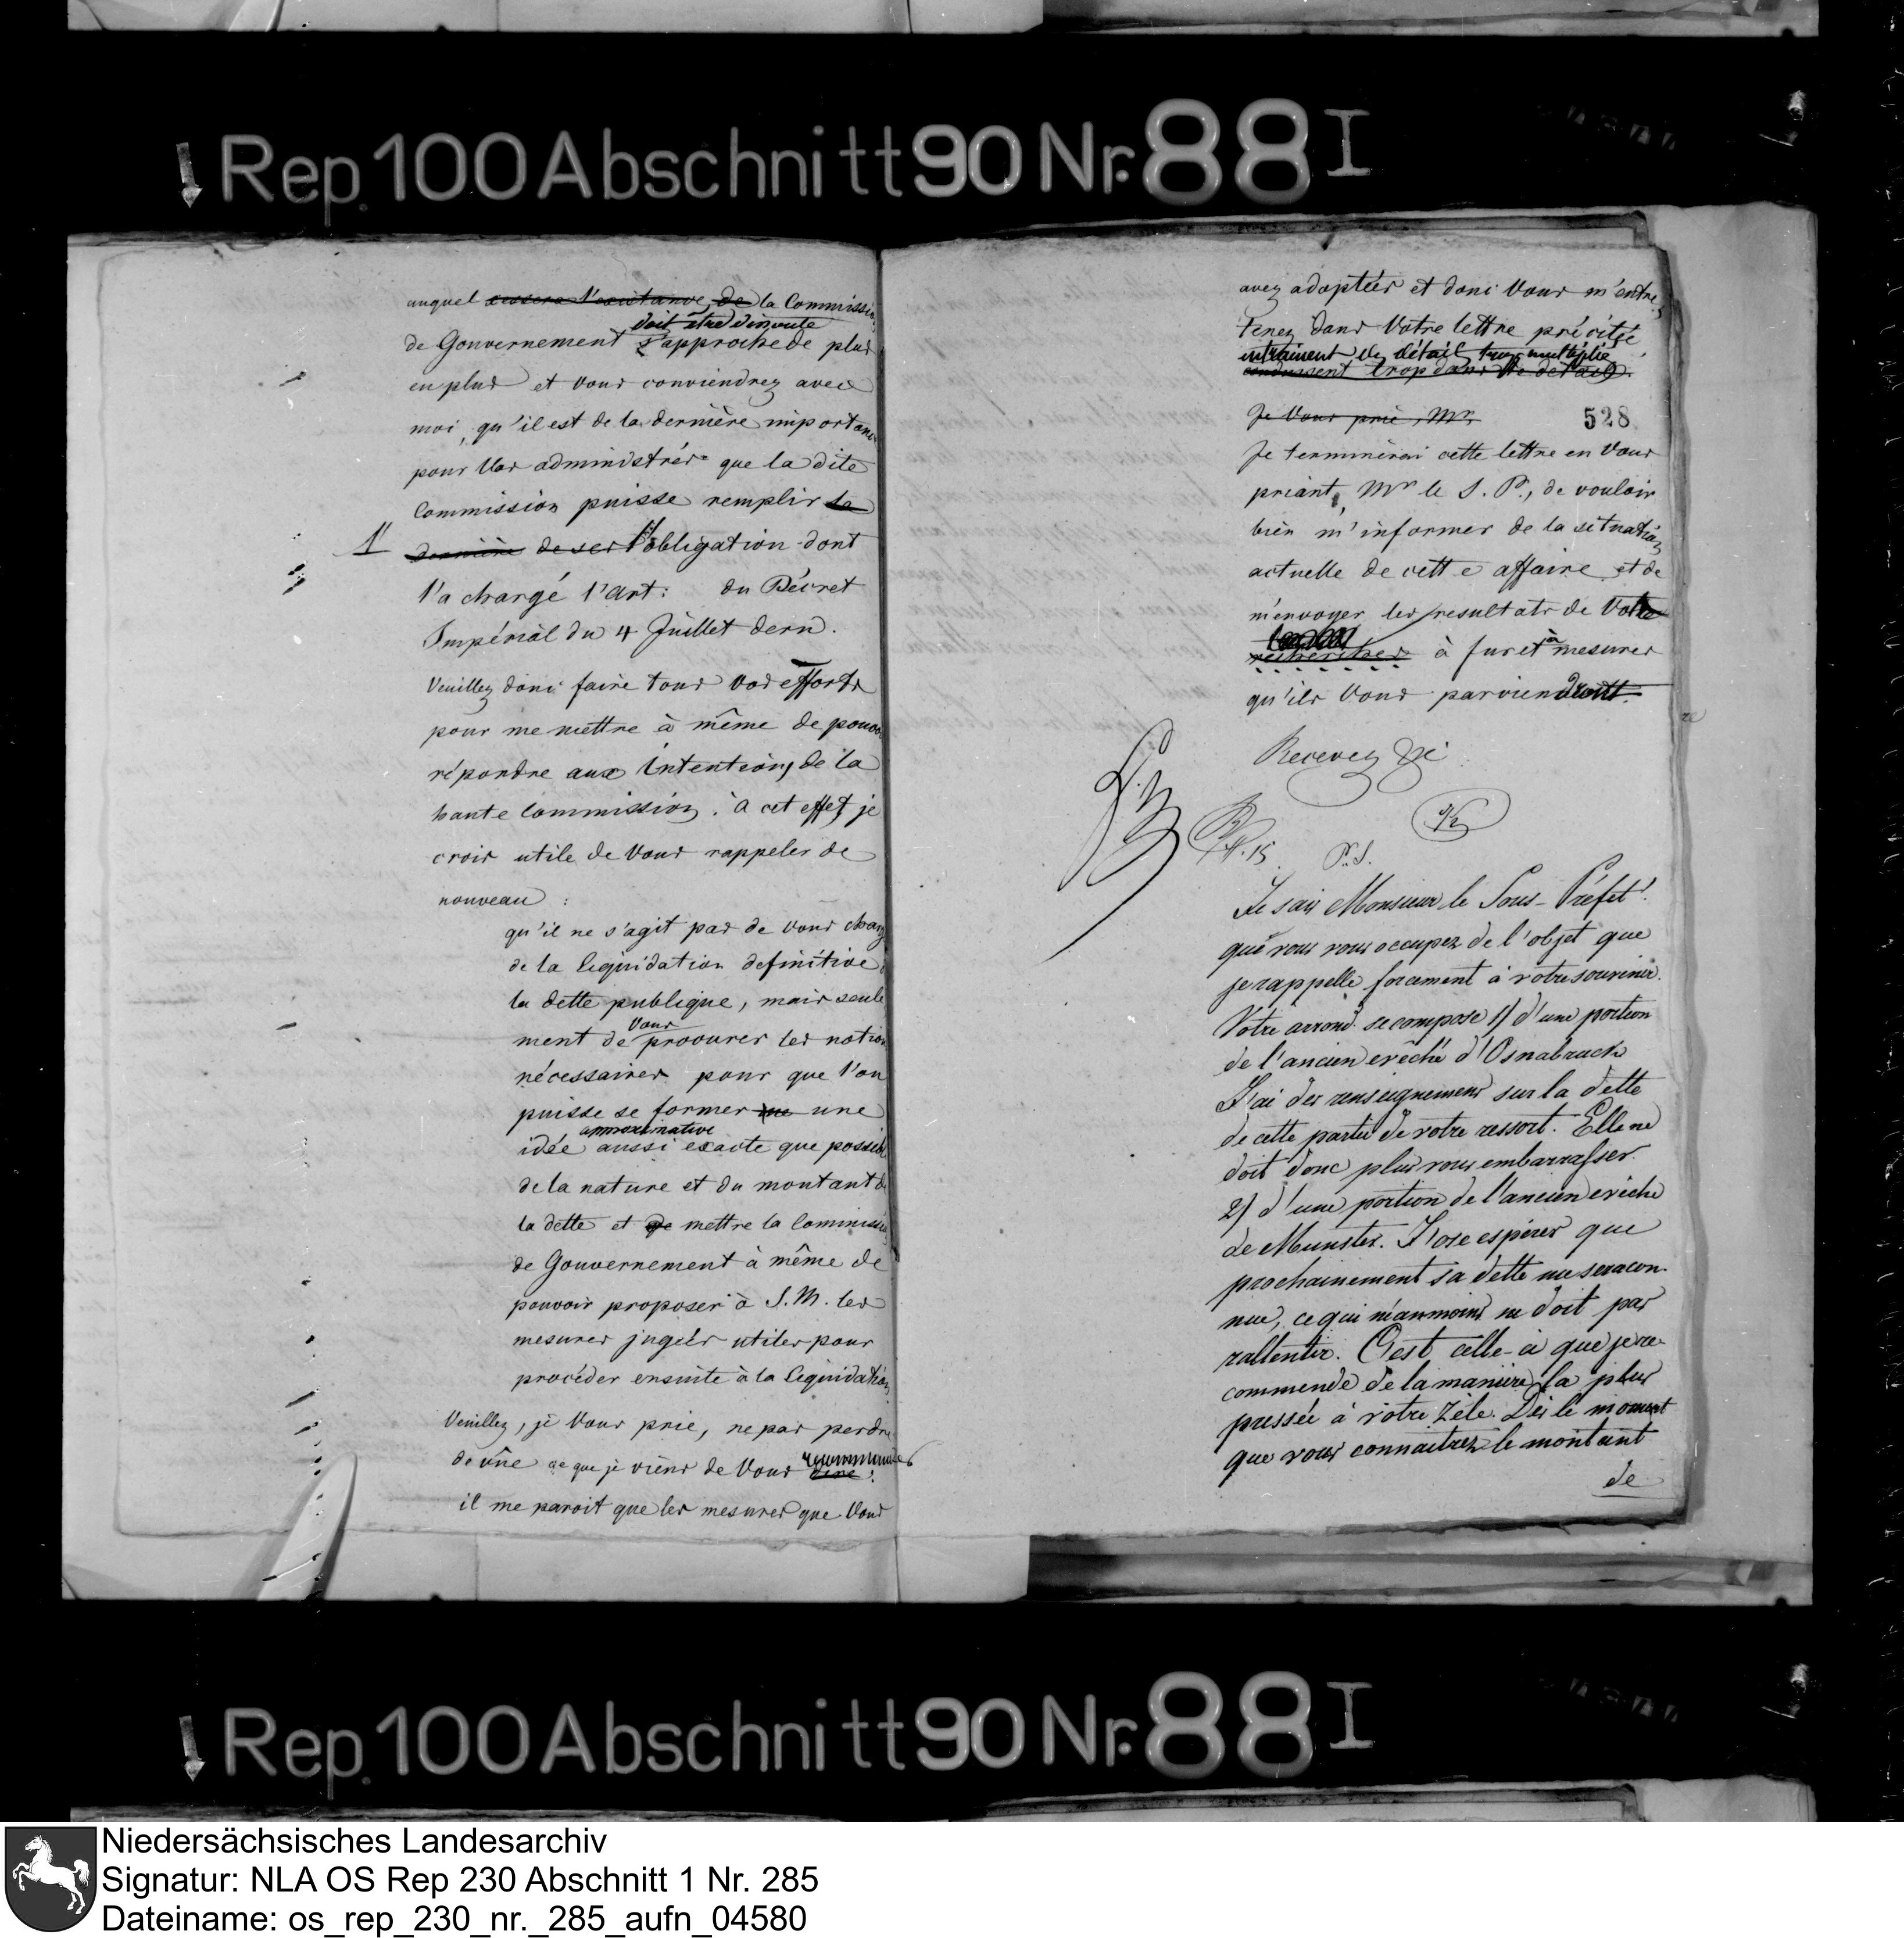 Rep. 100 Abschnitt 90 Nr. 88 I
auquel cessera l'existance de la Commission
doit être dissoute
de Gouvernement s'approche de plus
en plus et vous conviendrez avec
moi, qu'il est de la dernière importance
pour Vos administrés que la dite
Commission puisse remplir la
1
dernière de ses l'obligation dont
l'a chargé l'art: du Décret
Impérial du 4 Juillet dern.
Veuillez donc faire tous vos efforts
pour me mettre à même de pouvoir
répondre aux intentions de la
haute Commission. à cet effet, je
crois utile de Vous rappeler de
nouveau :
qu'il ne s'agit pas de vous charg
de la liquidation definitive
la dette publique, mais seule
Vous
ment de procurer les notions
nécessaires pour que l'on
puisse se former une
approximative
idée aussi exacte que possible
de la nature et du montant de
la dette et de mettre la Commission
de Gouvernement à même de
pouvoir proposer à S. M. les
mesures jugées utiles pour
procéder ensuite à la liquidation
Veuillez, je Vous prie, ne pas perdre
de vûe ce que je viens de Vous dire recommander
il me paroit que les mesures que Vous
avez adoptées et dont Vous m'entre
tenez dans Votre lettre précitée
entrainent des détails trop multipliés
conduisent trop dans le détail.
Je Vous prie, Mr.
528
Je terminerai cette lettre en Vous
priant, Mr le S. P., de vouloir
bien m'informer de la situation
actuelle de cette affaire et de
m'envoyer les resultats de Votre
recherches à fur et à mesures
qu'ils Vous parviendront.
Recevez &c
P. S.
Je sais Monsieur le Sous-Préfet!
que vous vous occupez de l'objet que
je rappelle forcement à votre souvenir.
Vôtre arrond. se compose 1) d'une portion
de l'ancien evêché d'Osnabruck
J'ai des renseignemens sur la dette
de cette partie de votre ressort. Elle ne
doit donc plus vous embarrasser.
2) d'une portion de l'ancien evêché
de Munster. J'ose espérer que
prochainement sa dette me sera con-
nue, ce qui néanmoins ne doit pas
rallentir. C'est celle-ci que je re-
commende de la manière la plus
pressée à vôtre Zèle. Dès le moment
que vous connaitrez le montant
de
Rep. 100 Abschnitt 90 Nr. 88 I
Niedersächsisches Landesarchiv
Signatur: NLA OS Rep 230 Abschnitt 1 Nr. 285
Dateiname: os_rep_230_nr._285_aufn_04580